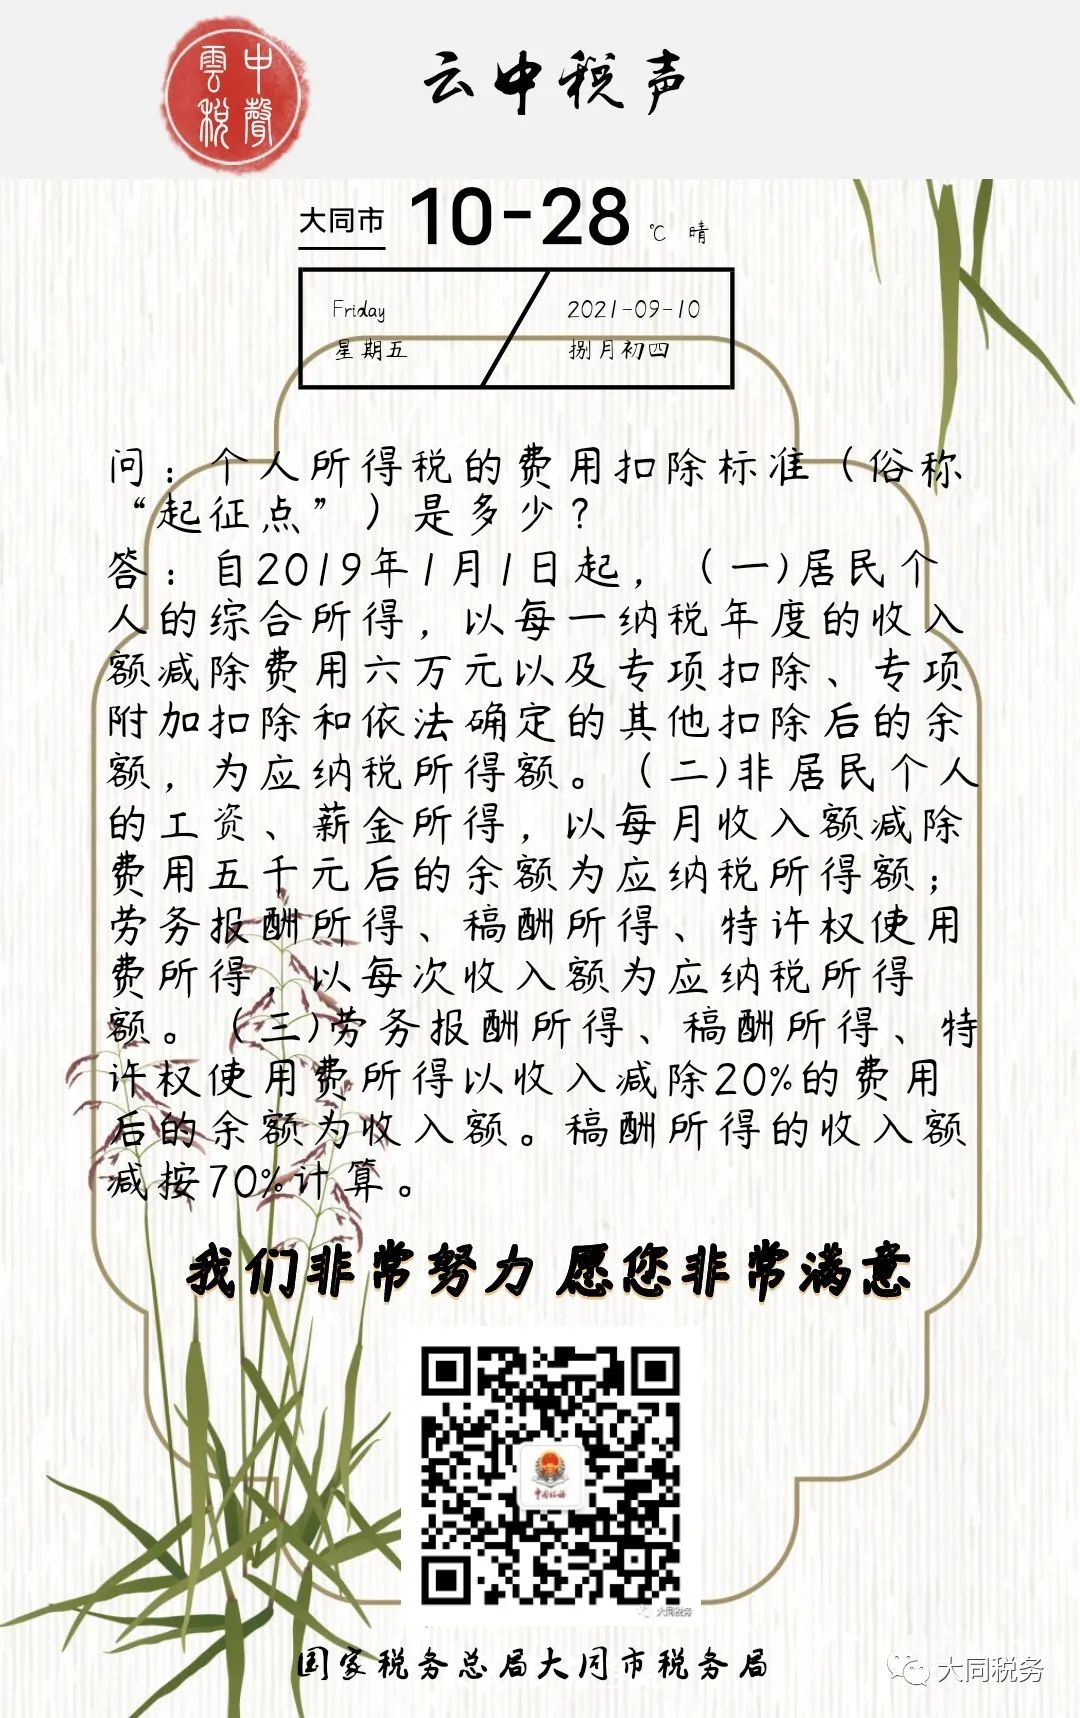 雲中
税聲
云中税声
大同市 10-28 ℃ 晴
Friday 2021-09-10
星期五 捌月初四
问：个人所得税的费用扣除标准（俗称
“起征点”）是多少？
答：自2019年1月1日起，（一)居民个
人的综合所得，以每一纳税年度的收入
额减除费用六万元以及专项扣除、专项
附加扣除和依法确定的其他扣除后的余
额，为应纳税所得额。（二)非居民个人
的工资、薪金所得，以每月收入额减除
费用五千元后的余额为应纳税所得额；
劳务报酬所得、稿酬所得、特许权使用
费所得，以每次收入额为应纳税所得
额。（三)劳务报酬所得、稿酬所得、特
许权使用费所得以收入减除20%的费用
后的余额为收入额。稿酬所得的收入额
减按70%计算。
我们非常努力 愿您非常满意
中国税务
大同税务
国家税务总局大同市税务局
大同税务